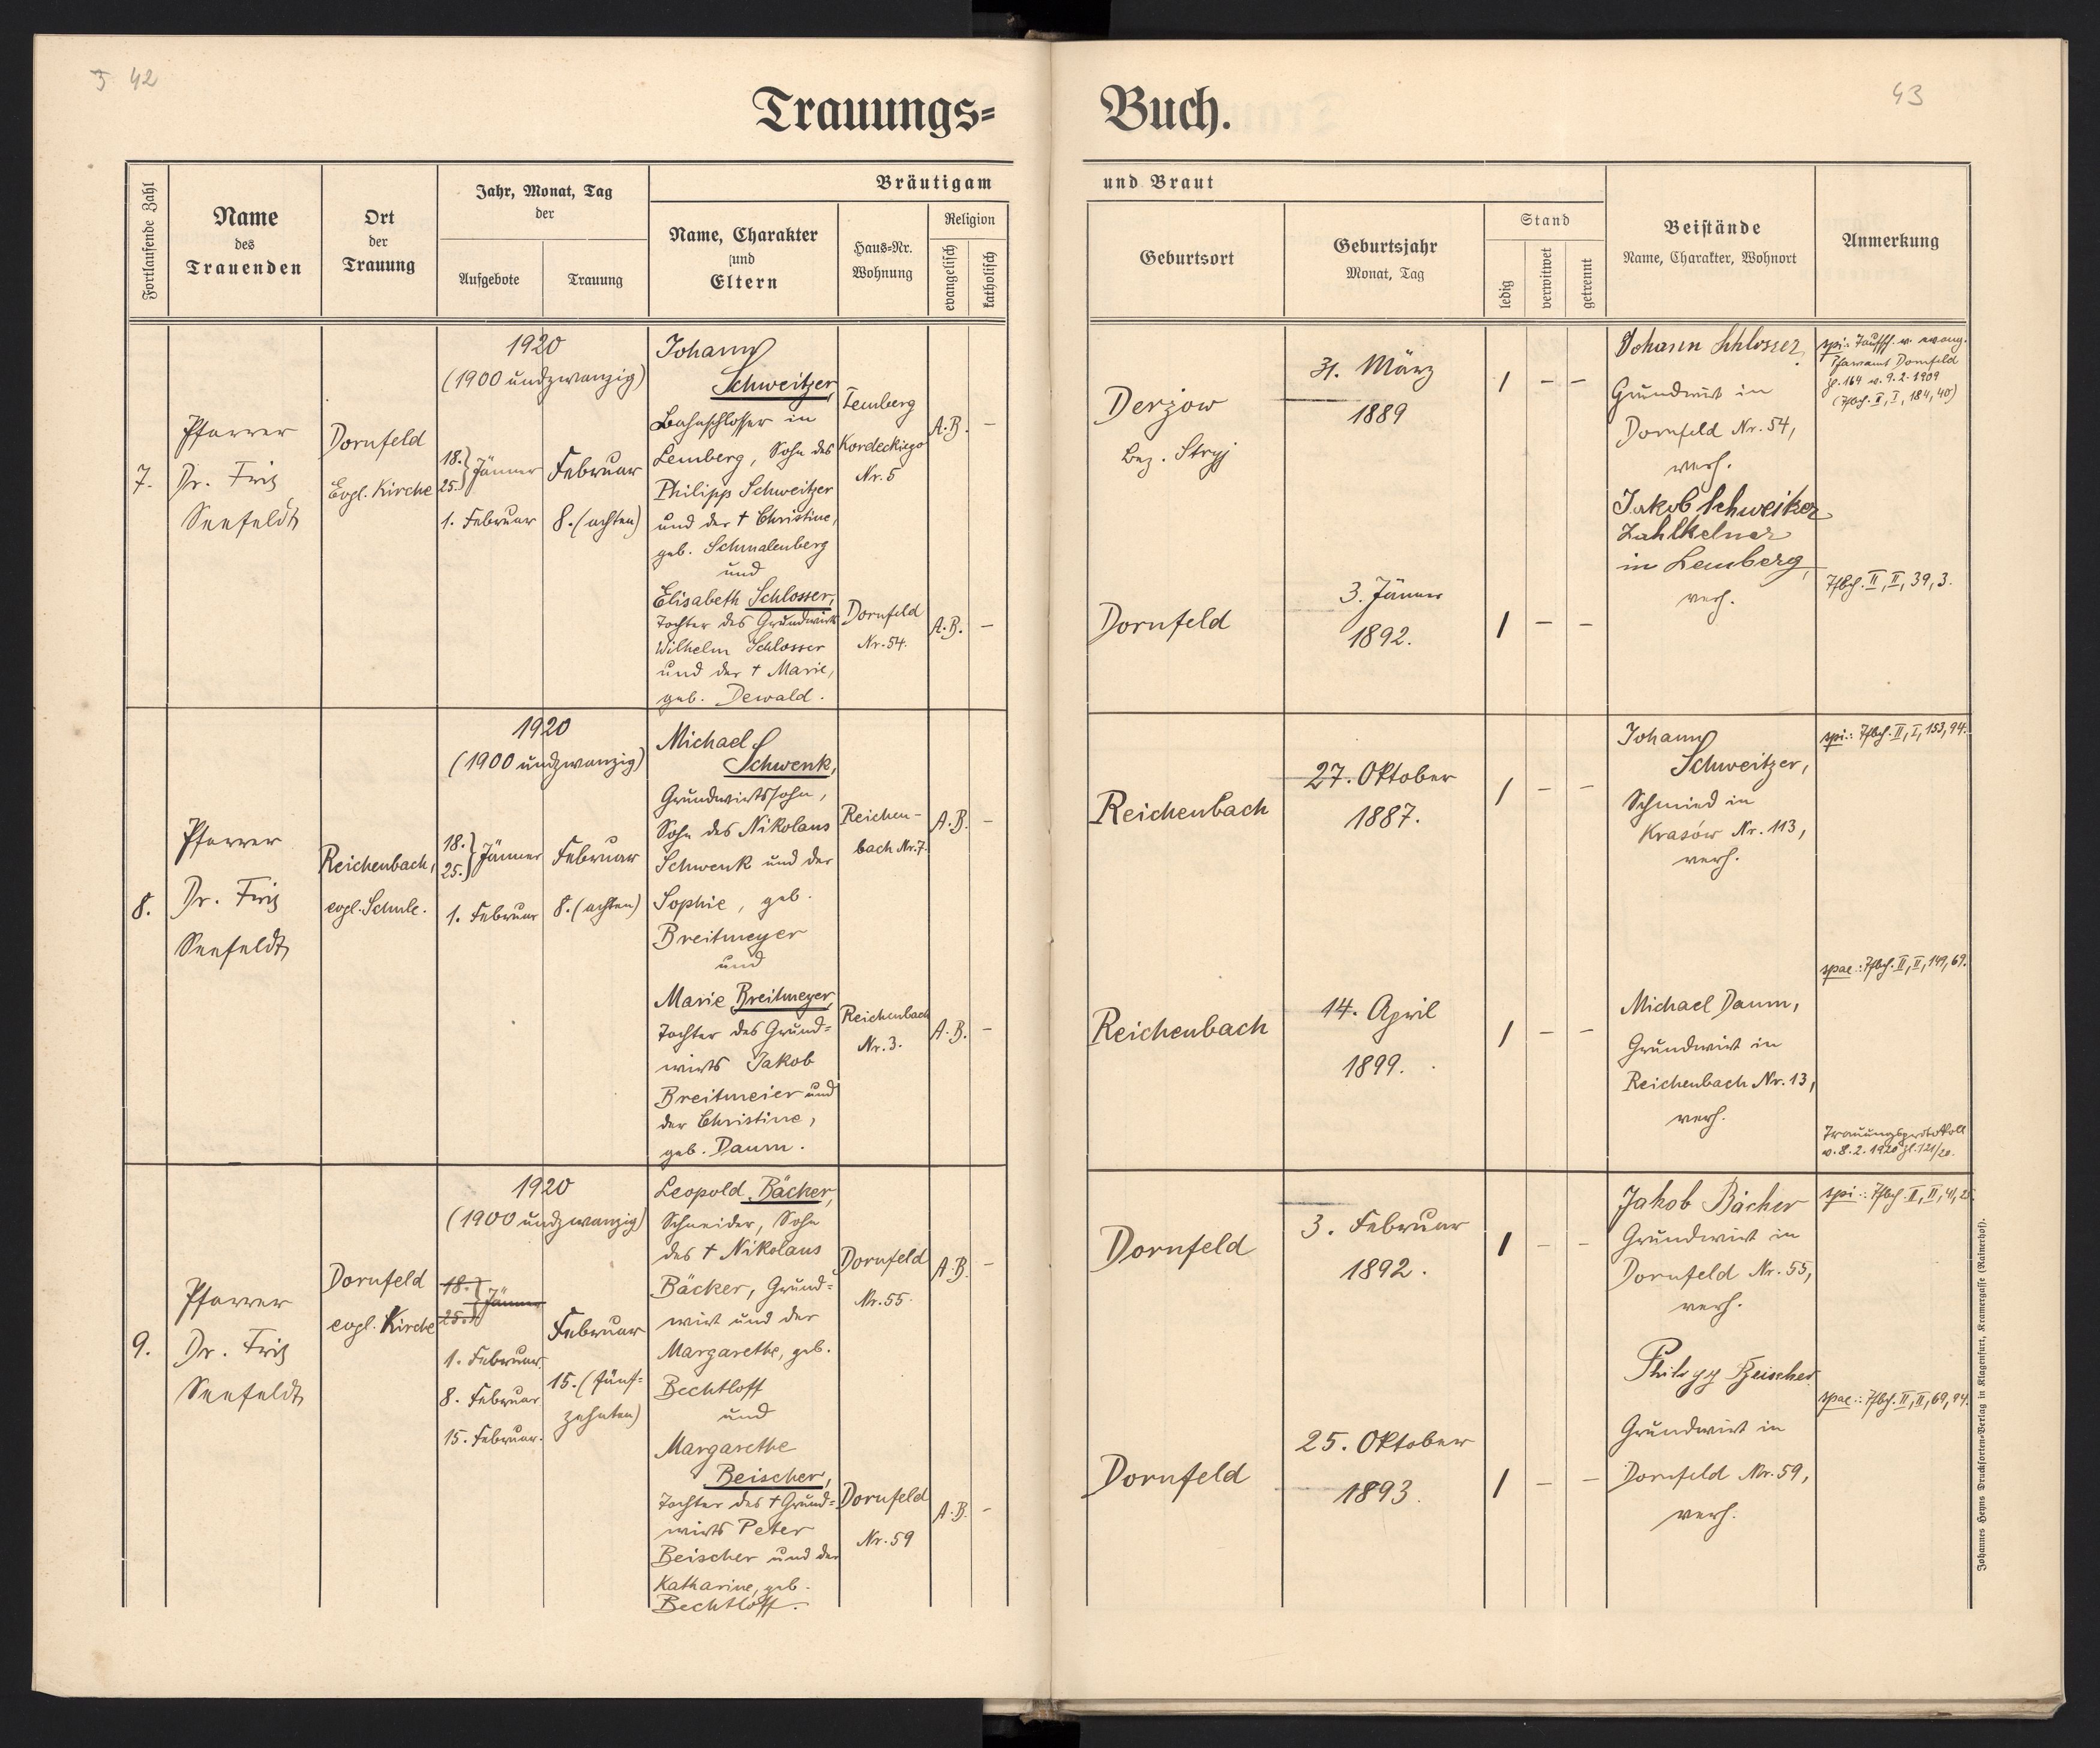 5 42
43
Trauungs-
Buch.
Fortlaufende Zahl
Name
des
Trauenden
Ort
der
Trauung
Jahr, Monat, Tag
der
Aufgebote
Trauung
Bräutigam
und Braut
Name, Charakter
und
Eltern
Haus-Nr.
Wohnung
Religion
evangelisch
katholisch
Geburtsort
Geburtsjahr
Monat, Tag
Stand
ledig
verwitwet
getrennt
Beistände
Name, Charakter, Wohnort
Anmerkung
7.
Pfarrer
Dr. Fritz
Seefeldt
Dornfeld
Evgl. Kirche
1920
(1900 undzwanzig)
18. } Jänner
25.
1. Februar
Februar
8. (achten)
Johann
Schweitzer,
Bahnschlosser in
Lemberg, Sohn des
Philipp Schweitzer
und der † Christine,
geb. Schmalenberg
und
Elisabeth Schlosser,
Tochter des Grundwirts
Wilhelm Schlosser
und der † Marie,
geb. Dewald.
Lemberg
Kordeckiego
Nr. 5
A.B. –
Dornfeld
Nr. 54.
A.B. –
Derzow
Bez. Stryj
31. März
1889
/ – –
Dornfeld
3. Jänner
1892.
/ – –
Johann Schlosser,
Grundwirt in
Dornfeld Nr. 54,
verh.
Jakob Schweitzer
Zahlkelner
in Lemberg,
verh.
spi: Taufsch. v. evang.
Pfarramt Dornfeld
Z. 164 v. 9.2.1909
(Pfbch. II, I, 184, 40)
Pfbch. II, II, 39, 3.
8.
Pfarrer
Dr. Fritz
Seefeldt
Reichenbach,
evgl. Schule.
1920
(1900 undzwanzig)
18. } Jänner
25.
1. Februar
Februar
8. (achten)
Michael
Schwenk,
Grundwirtssohn,
Sohn des Nikolaus
Schwenk und der
Sophie, geb.
Breitmeyer
und
Marie Breitmeyer,
Tochter des Grund-
wirts Jakob
Breitmeier und
der Christine,
geb. Daum.
Reichen-
bach Nr. 7.
A.B. –
Reichenbach
Nr. 3.
A.B. –
Reichenbach
27. Oktober
1887.
/ – –
Reichenbach
14. April
1899.
/ – –
Johann
Schweitzer,
Schmied in
Krasów Nr. 113,
verh.
Michael Daum,
Grundwirt in
Reichenbach Nr. 13,
verh.
spi.: Pfbch. II, I, 153, 94.
spae.: Pfbch. II, II, 149, 69.
Trauungsprotokoll
v. 8.2.1920 Zl. 121/20.
9.
Pfarrer
Dr. Fritz
Seefeldt
Dornfeld
evgl. Kirche
1920
(1900 undzwanzig)
18. } Jänner
25.
1. Februar
8. Februar
15. Februar.
Februar
15. (fünf-
zehnten)
Leopold Bäcker,
Schneider, Sohn
des † Nikolaus
Bäcker, Grund-
wirt und der
Margarethe, geb.
Bechtloff
und
Margarethe
Beischer,
Tochter des † Grund-
wirts Peter
Beischer und der
Katharine, geb.
Bechtloff.
Dornfeld
Nr. 55.
A.B. –
Dornfeld
Nr. 59
A.B. –
Dornfeld
3. Februar
1892.
/ – –
Dornfeld
25. Oktober
1893.
/ – –
Jakob Bächer
Grundwirt in
Dornfeld Nr. 55,
verh.
Philipp Beischer
Grundwirt in
Dornfeld Nr. 59,
verh.
spi.: Pfbch. II, II, 41, 25.
spae.: Pfbch. II, II, 69, 94.
Johannes Heyns Drucksorten-Verlag in Klagenfurt, Kramergasse (Rainerhof).